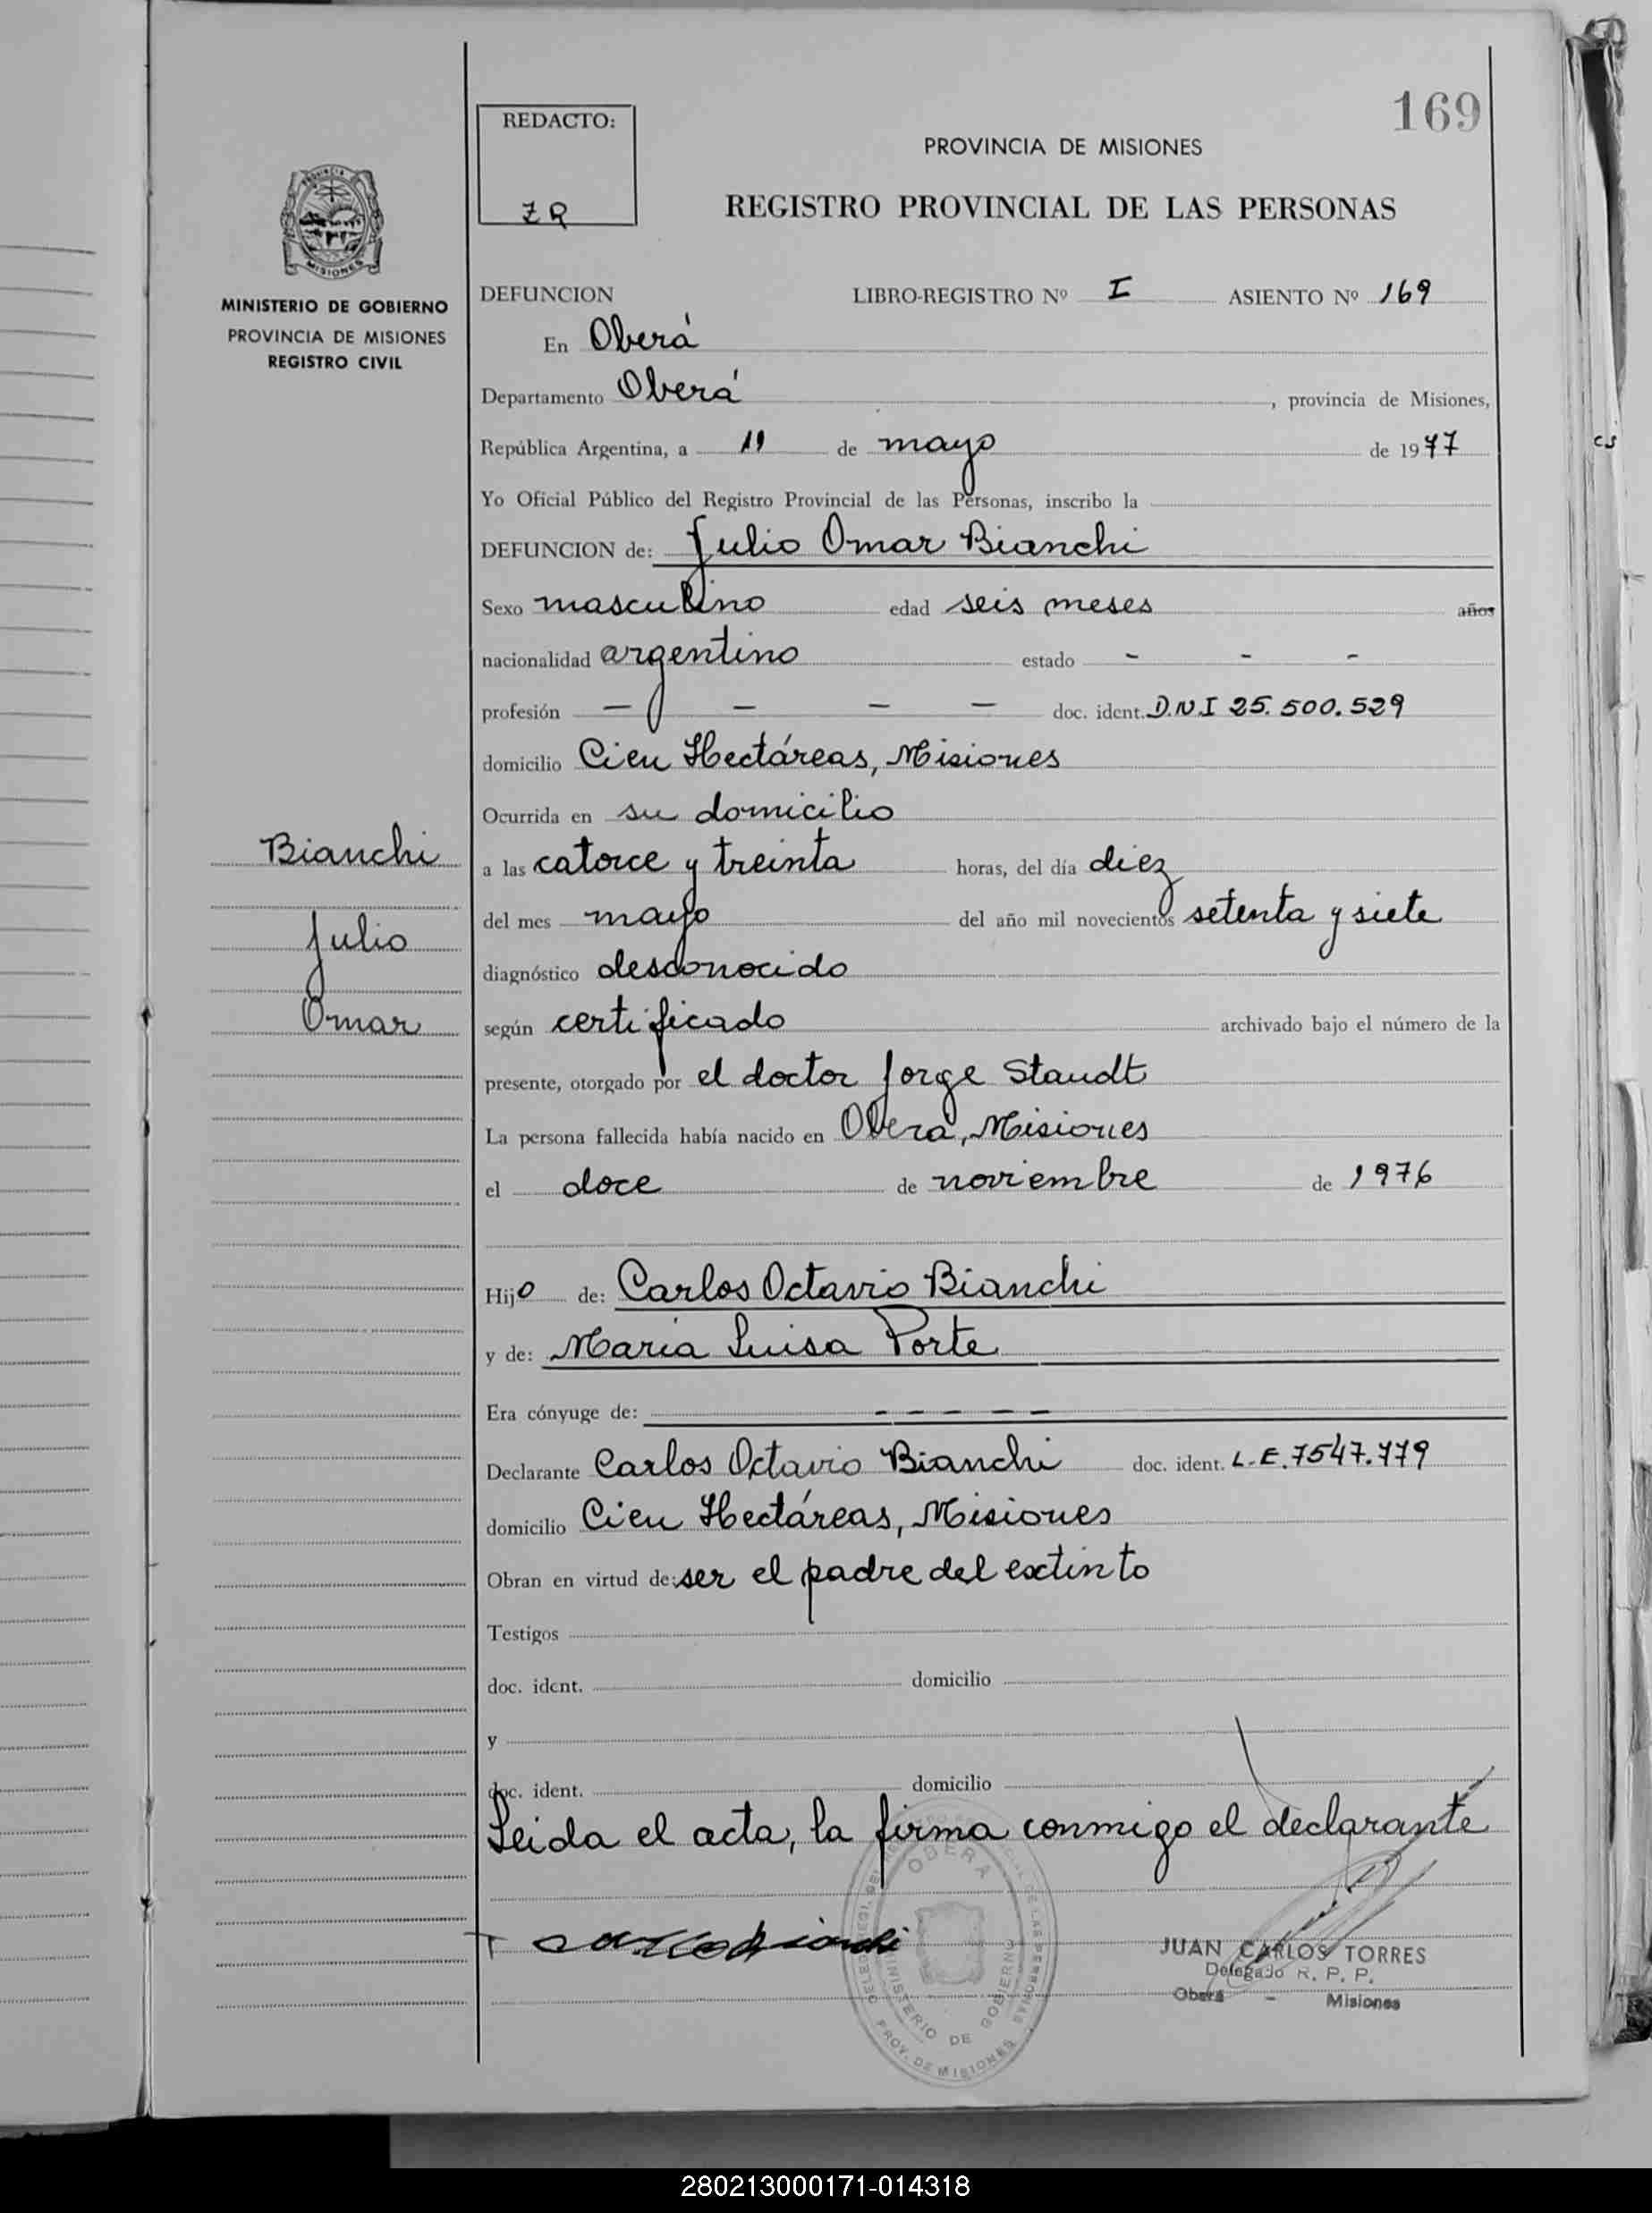 169
REDACTO:
ZR
PROVINCIA DE MISIONES
REGISTRO PROVINCIAL DE LAS PERSONAS
MISIONES
MINISTERIO DE GOBIERNO
PROVINCIA DE MISIONES
REGISTRO CIVIL
DEFUNCION LIBRO-REGISTRO Nº I ASIENTO Nº 169
En Oberá
Departamento Oberá, provincia de Misiones,
República Argentina, a 11 de mayo de 1977
Yo Oficial Público del Registro Provincial de las Personas, inscribo la
DEFUNCION de: Julio Omar Bianchi
Sexo masculino edad seis meses años
nacionalidad argentino estado - - -
profesión - - - - doc. ident. D.N.I 25.500.529
domicilio Cien Hectáreas, Misiones
Ocurrida en su domicilio
Bianchi
Julio
Omar
a las catorce y treinta horas, del día diez
del mes mayo del año mil novecientos setenta y siete
diagnóstico desconocido
según certificado archivado bajo el número de la
presente, otorgado por el doctor Jorge Staudt
La persona fallecida había nacido en Oberá, Misiones
el doce de noviembre de 1976
Hijo de: Carlos Octavio Bianchi
y de: Maria Luisa Porte
Era cónyuge de: - - - - -
Declarante Carlos Octavio Bianchi doc. ident. L.E. 7547.779
domicilio Cien Hectáreas, Misiones
Obran en virtud de: ser el padre del extinto
Testigos
doc. ident. domicilio
y
doc. ident. domicilio
Leida el acta, la firma conmigo el declarante
OBERA
MINISTERIO DE GOBIERNO
PROV. DE MISIONES
JUAN CARLOS TORRES
Delegado R. P. P.
Oberá - Misiones
cs
280213000171-014318